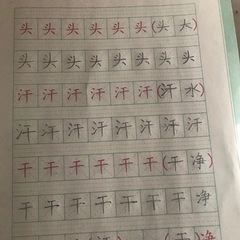 头头头头头头(头大)
头头头头头头头头
汗汗汗汗汗汗(汗水)
汗汗汗汗汗汗汗汗
干干干干干干(干净)
干干干干干干干净
(干)净